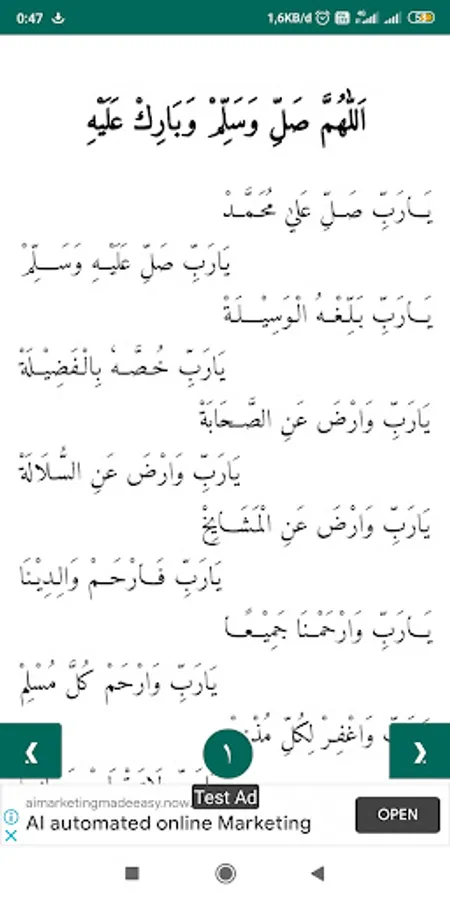 0:47
1,6KB/d
اَللّٰهُمَّ صَلِّ وَسَلِّمْ وَبَارِكْ عَلَيْهِ
يَـارَبِّ صَـلِّ عَلٰي مُحَـمَّـدْ
يَارَبِّ صَلِّ عَلَيْـهِ وَسَـــلِّمْ
يَـارَبِّ بَـلِّـغْـهُ الْوَسِيْـــلَـةْ
يَارَبِّ خُـصَّـهٗ بِالْـفَضِيْـلَةْ
يَارَبِّ وَارْضَ عَنِ الصَّـحَابَةْ
يَارَبِّ وَارْضَ عَنِ السُّـلَالَةْ
يَارَبِّ وَارْضَ عَنِ الْمَشَـايِخْ
يَارَبِّ فَـارْحَـمْ وَالِـدِيْـنَا
يَـارَبِّ وَارْحَمْـنَا جَمِيْـعًـا
يَارَبِّ وَارْحَمْ كُلَّ مُسْلِمْ
وَاغْفِـرْ لِكُلِّ
١
Test Ad
aimarketingmadeeasy.now.
AI automated online Marketing
OPEN